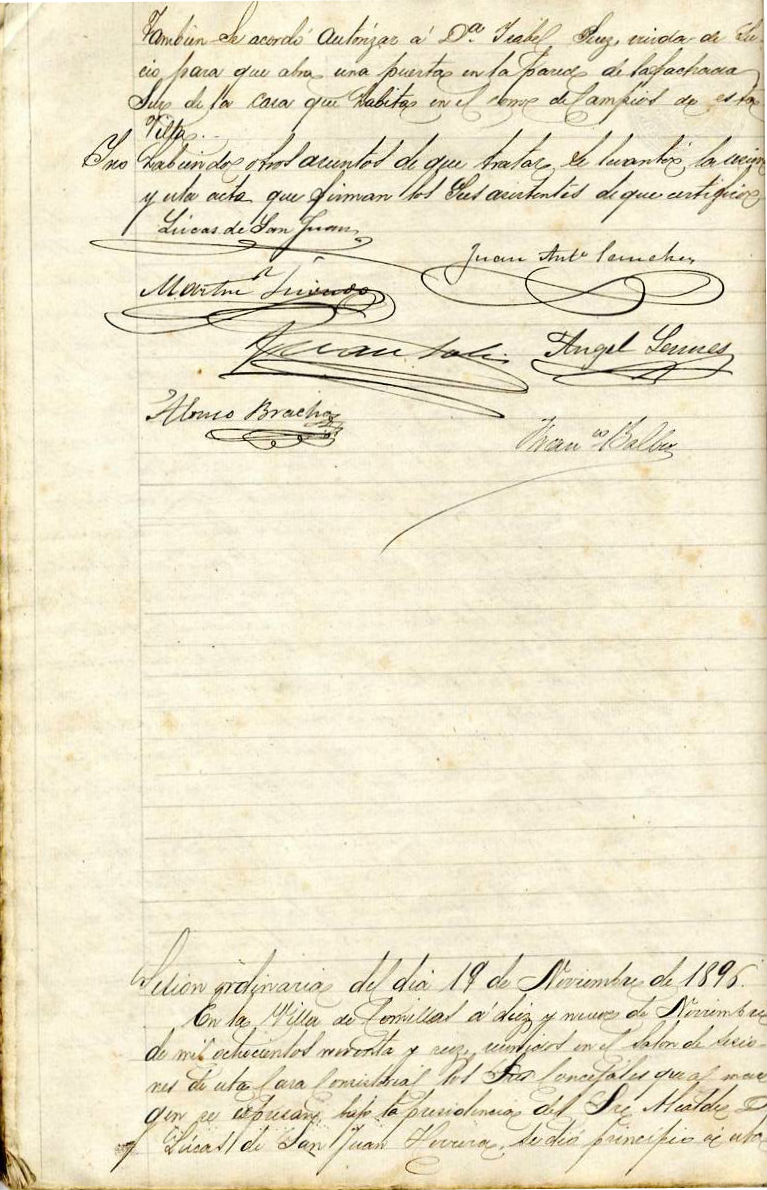 También se acordó autorizar á Dª. Isabel Ruiz, viuda de Lu-
cio para que abra una puerta en la pared de la fachada
Sur de la casa que habita en el de Campios de esta
Villa.
Y no habiendo otros asuntos de que tratar se levantó la sesion
y esta acta que firman los Sres asistentes de que certifico
Lucas de San Juan
Juan Antº Sanchez
Martin
Juan Solis
Angel
Alonso Bracho
Franco Balbin
Sesion ordinaria del dia 19 de Noviembre de 1896.
En la Villa de Comillas á diez y nueve de Noviembre
de mil ochocientos noventa y seis, reunidos en el salon de sesio-
nes de esta Casa Consistorial los Sres Concejales que al mar-
gen se espresan, bajo la presidencia del Sr. Alcalde D.
Lucas de San Juan Herrera, se dió principio á esta